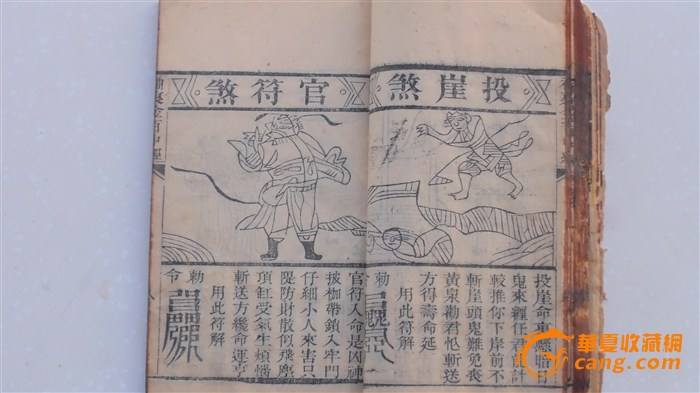 投崖煞
投崖命裏
鬼來纏任君
較推你下岸前不
斬崖頭鬼難免喪
黃泉勸君忙斬送
方得壽命延
用此符解
官符煞
官符入命是凶神
披枷帶鎖入牢門
仔細小人來害只
隄防財散似飛磨
項缸受氣生煩惱
斬送方纔命運亨
用此符解
勅令
華夏收藏網
cang.com